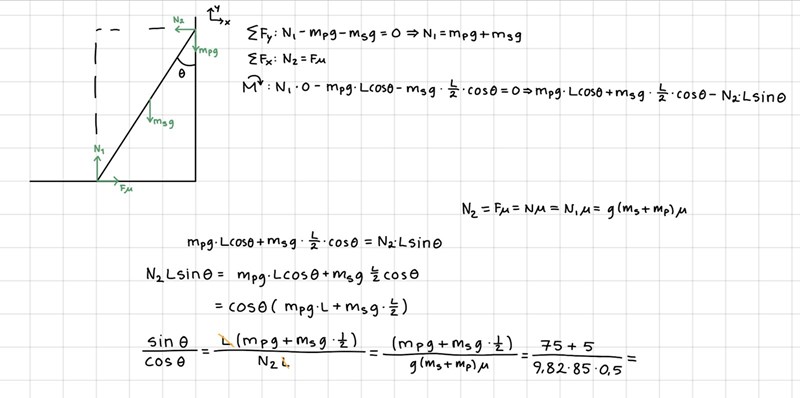 N₂
y
x
mpg
θ
msg
N₁
Fμ
ΣFy: N₁ - mpg - msg = 0 ⇒ N₁ = mpg + msg
ΣFx: N₂ = Fμ
M: N₁·0 - mpg·Lcosθ - msg·L/2·cosθ = 0 ⇒ mpg·Lcosθ + msg·L/2·cosθ - N₂·Lsinθ
N₂ = Fμ = Nμ = N₁μ = g(ms + mp)μ
mpg·Lcosθ + msg·L/2·cosθ = N₂·Lsinθ
N₂Lsinθ = mpg·Lcosθ + msg L/2 cosθ
= cosθ(mpg·L + msg·L/2)
sinθ/cosθ = L(mpg + msg·1/2)/N₂L = (mpg + msg·1/2)/g(ms + mp)μ = 75 + 5/9,82·85·0,5 =